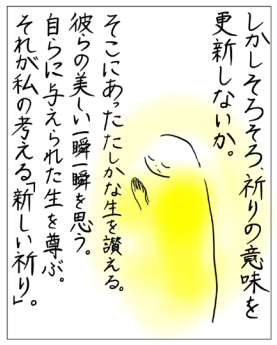 しかしそろそろ、祈りの意味を
更新しないか。
そこにあったたしかな生を讃える。
彼らの美しい一瞬一瞬を思う。
自らに与えられた生を尊ぶ。
それが私の考える「新しい祈り」。